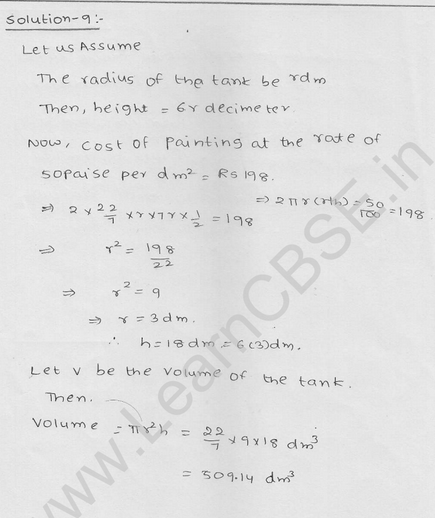 Solution-9:-
Let us Assume
The radius of the tank be rdm
Then, height = 6r decimeter
Now, cost of painting at the rate of
50paise per dm² = Rs 198.
⇒ 2 × 22/7 × r × 7r × 1/2 = 198 ⇒ 2πr(r+h) = 50/100 = 198
⇒ r² = 198/22
⇒ r² = 9
⇒ r = 3dm.
∴ h = 18dm = 6(3)dm.
Let V be the volume of the tank.
Then.
Volume = πr²h = 22/7 × 9 × 18 dm³
= 509.14 dm³
www.LearnCBSE.in